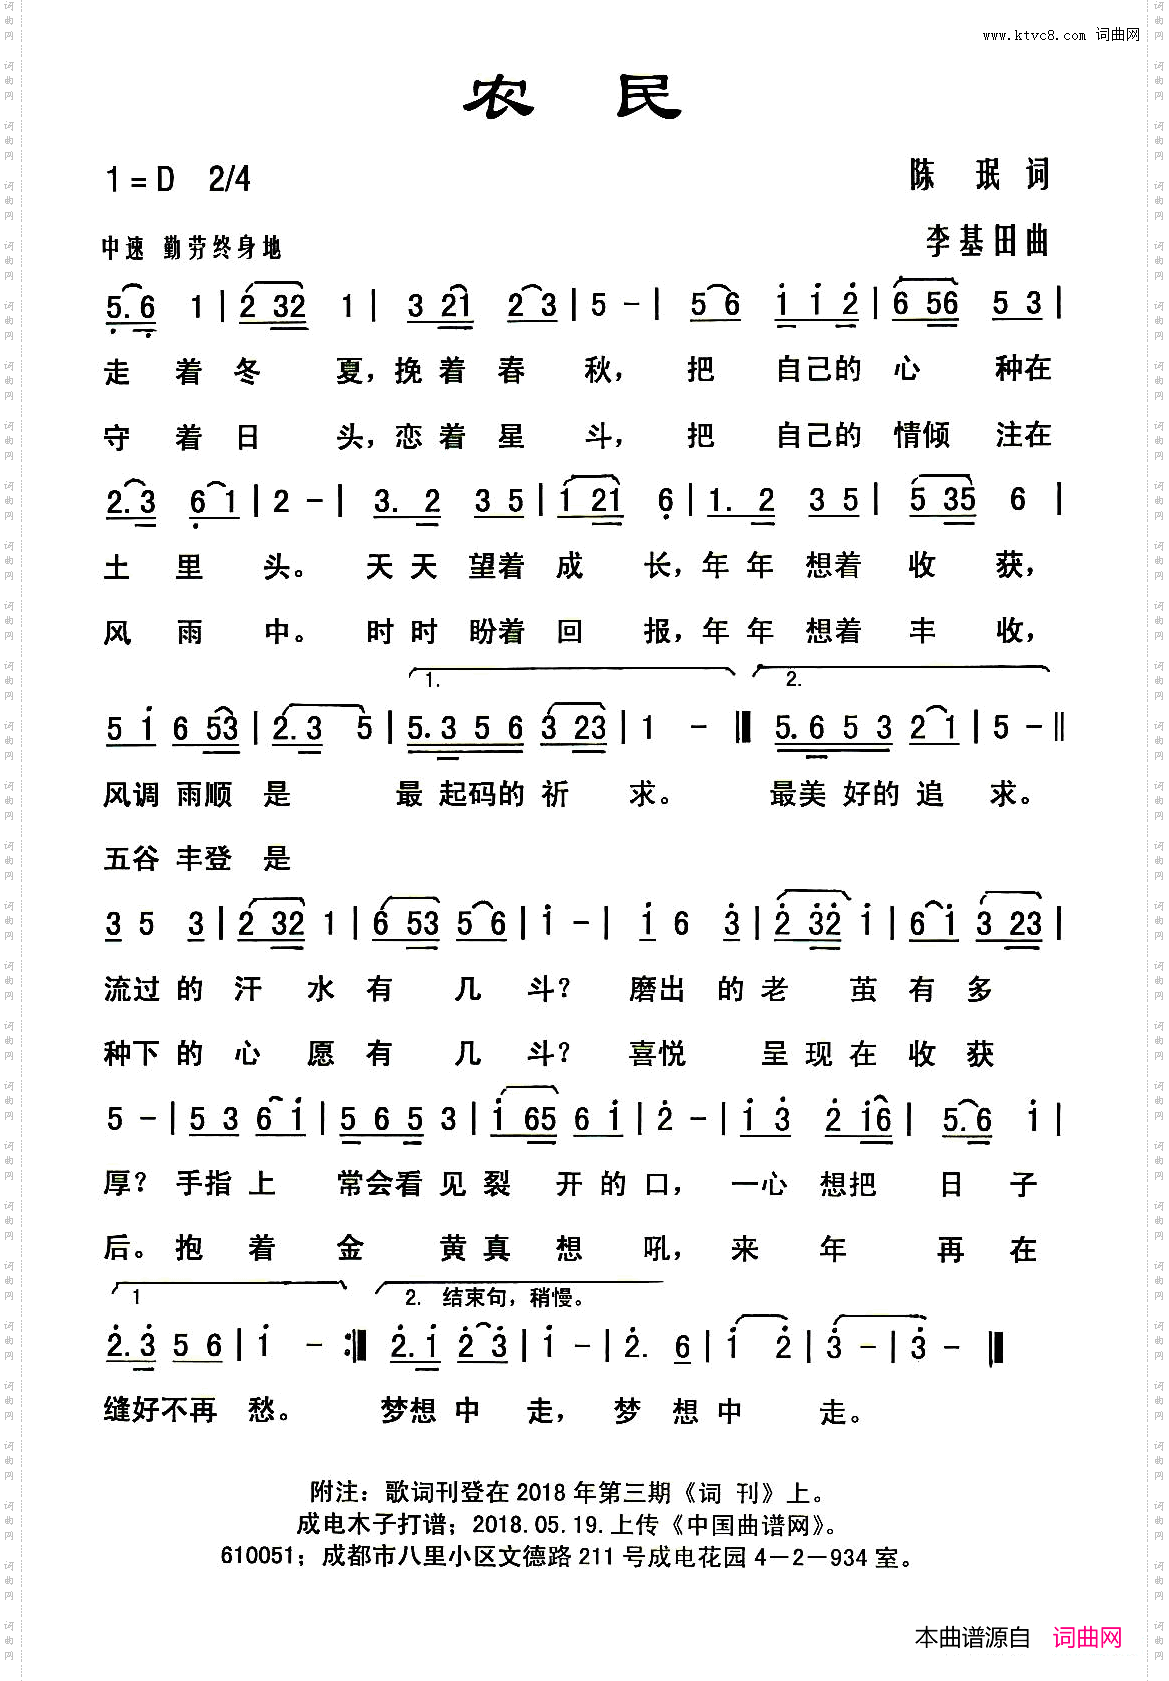 www.ktvc8.com 词曲网
农 民
1=D 2/4
陈 珉 词
中速 勤劳终身地
李基田曲
5.6 1 | 2 32 1 | 3 21 2 3 | 5 - | 5 6 1 1 2 | 6 56 5 3 |
走 着 冬 夏，挽 着 春 秋， 把 自己的 心 种在
守 着 日 头，恋 着 星 斗， 把 自己的 情倾 注在
2.3 6 1 | 2 - | 3. 2 3 5 | 1 21 6 | 1. 2 3 5 | 5 35 6 |
土 里 头。 天 天 望着 成 长，年 年 想着 收 获，
风 雨 中。 时 时 盼着 回 报，年 年 想着 丰 收，
1. 2.
5 1 6 53 | 2.3 5 | 5.3 5 6 3 23 | 1 - ‖ 5.6 5 3 2 1 | 5 - ‖
风调 雨顺 是 最 起码的 祈 求。 最美 好的 追 求。
五谷 丰登 是
3 5 3 | 2 32 1 | 6 53 5 6 | 1 - | 1 6 3 | 2 32 1 | 6 1 3 23 |
流过 的 汗 水 有 几 斗？ 磨出 的 老 茧 有 多
种下 的 心 愿 有 几 斗？ 喜悦 呈 现 在 收 获
5 - | 5 3 6 1 | 5 6 5 3 | 1 65 6 1 | 2 - | 1 3 2 16 | 5.6 1 |
厚？ 手指 上 常会看 见 裂 开 的 口， 一心 想把 日 子
后。 抱 着 金 黄 真 想 吼， 来 年 再 在
1 2. 结束句，稍慢。
2.3 5 6 | 1 - :‖ 2.1 2 3 | 1 - | 2. 6 | 1 2 | 3 - | 3 - ‖
缝好不再 愁。 梦想 中 走， 梦 想 中 走。
附注：歌词刊登在 2018 年第三期《词 刊》上。
成电木子打谱；2018.05.19.上传《中国曲谱网》。
610051；成都市八里小区文德路 211 号成电花园 4－2－934 室。
本曲谱源自 词曲网